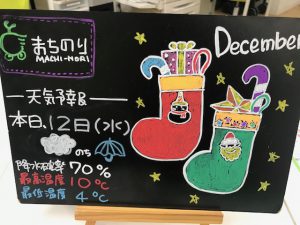 まちのり
MACHI-NORI
December
天気予報
本日、12日(水)
のち
降水確率 70%
最高温度 10℃
最低温度 4℃